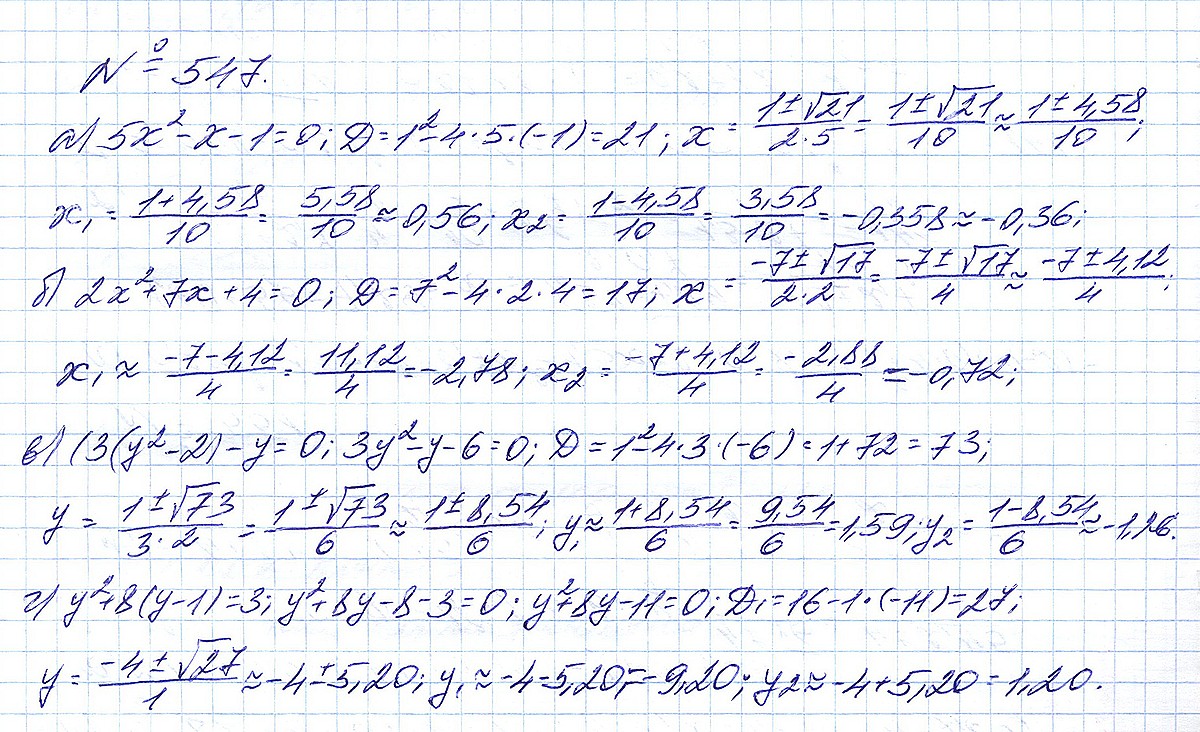 № 547.
а) 5x² - x - 1 = 0; D = 1² - 4 · 5 · (-1) = 21; x = (1 ± √21)/(2 · 5) = (1 ± √21)/10 ≈ (1 ± 4,58)/10;
x₁ = (1 + 4,58)/10 = 5,58/10 ≈ 0,56; x₂ = (1 - 4,58)/10 = 3,58/10 = -0,358 ≈ -0,36;
б) 2x² + 7x + 4 = 0; D = 7² - 4 · 2 · 4 = 17; x = (-7 ± √17)/(2 · 2) = (-7 ± √17)/4 ≈ (-7 ± 4,12)/4;
x₁ ≈ (-7 - 4,12)/4 = 11,12/4 = -2,78; x₂ = (-7 + 4,12)/4 = -2,88/4 = -0,72;
в) (3(y² - 2) - y = 0; 3y² - y - 6 = 0; D = 1² - 4 · 3 · (-6) = 1 + 72 = 73;
y = (1 ± √73)/(3 · 2) = (1 ± √73)/6 ≈ (1 ± 8,54)/6; y₁ ≈ (1 + 8,54)/6 = 9,54/6 = 1,59; y₂ = (1 - 8,54)/6 ≈ -1,26.
г) y² + 8(y - 1) = 3; y² + 8y - 8 - 3 = 0; y² + 8y - 11 = 0; D₁ = 16 - 1 · (-11) = 27;
y = (-4 ± √27)/1 ≈ -4 ± 5,20; y₁ ≈ -4 - 5,20 = -9,20; y₂ ≈ -4 + 5,20 = 1,20.